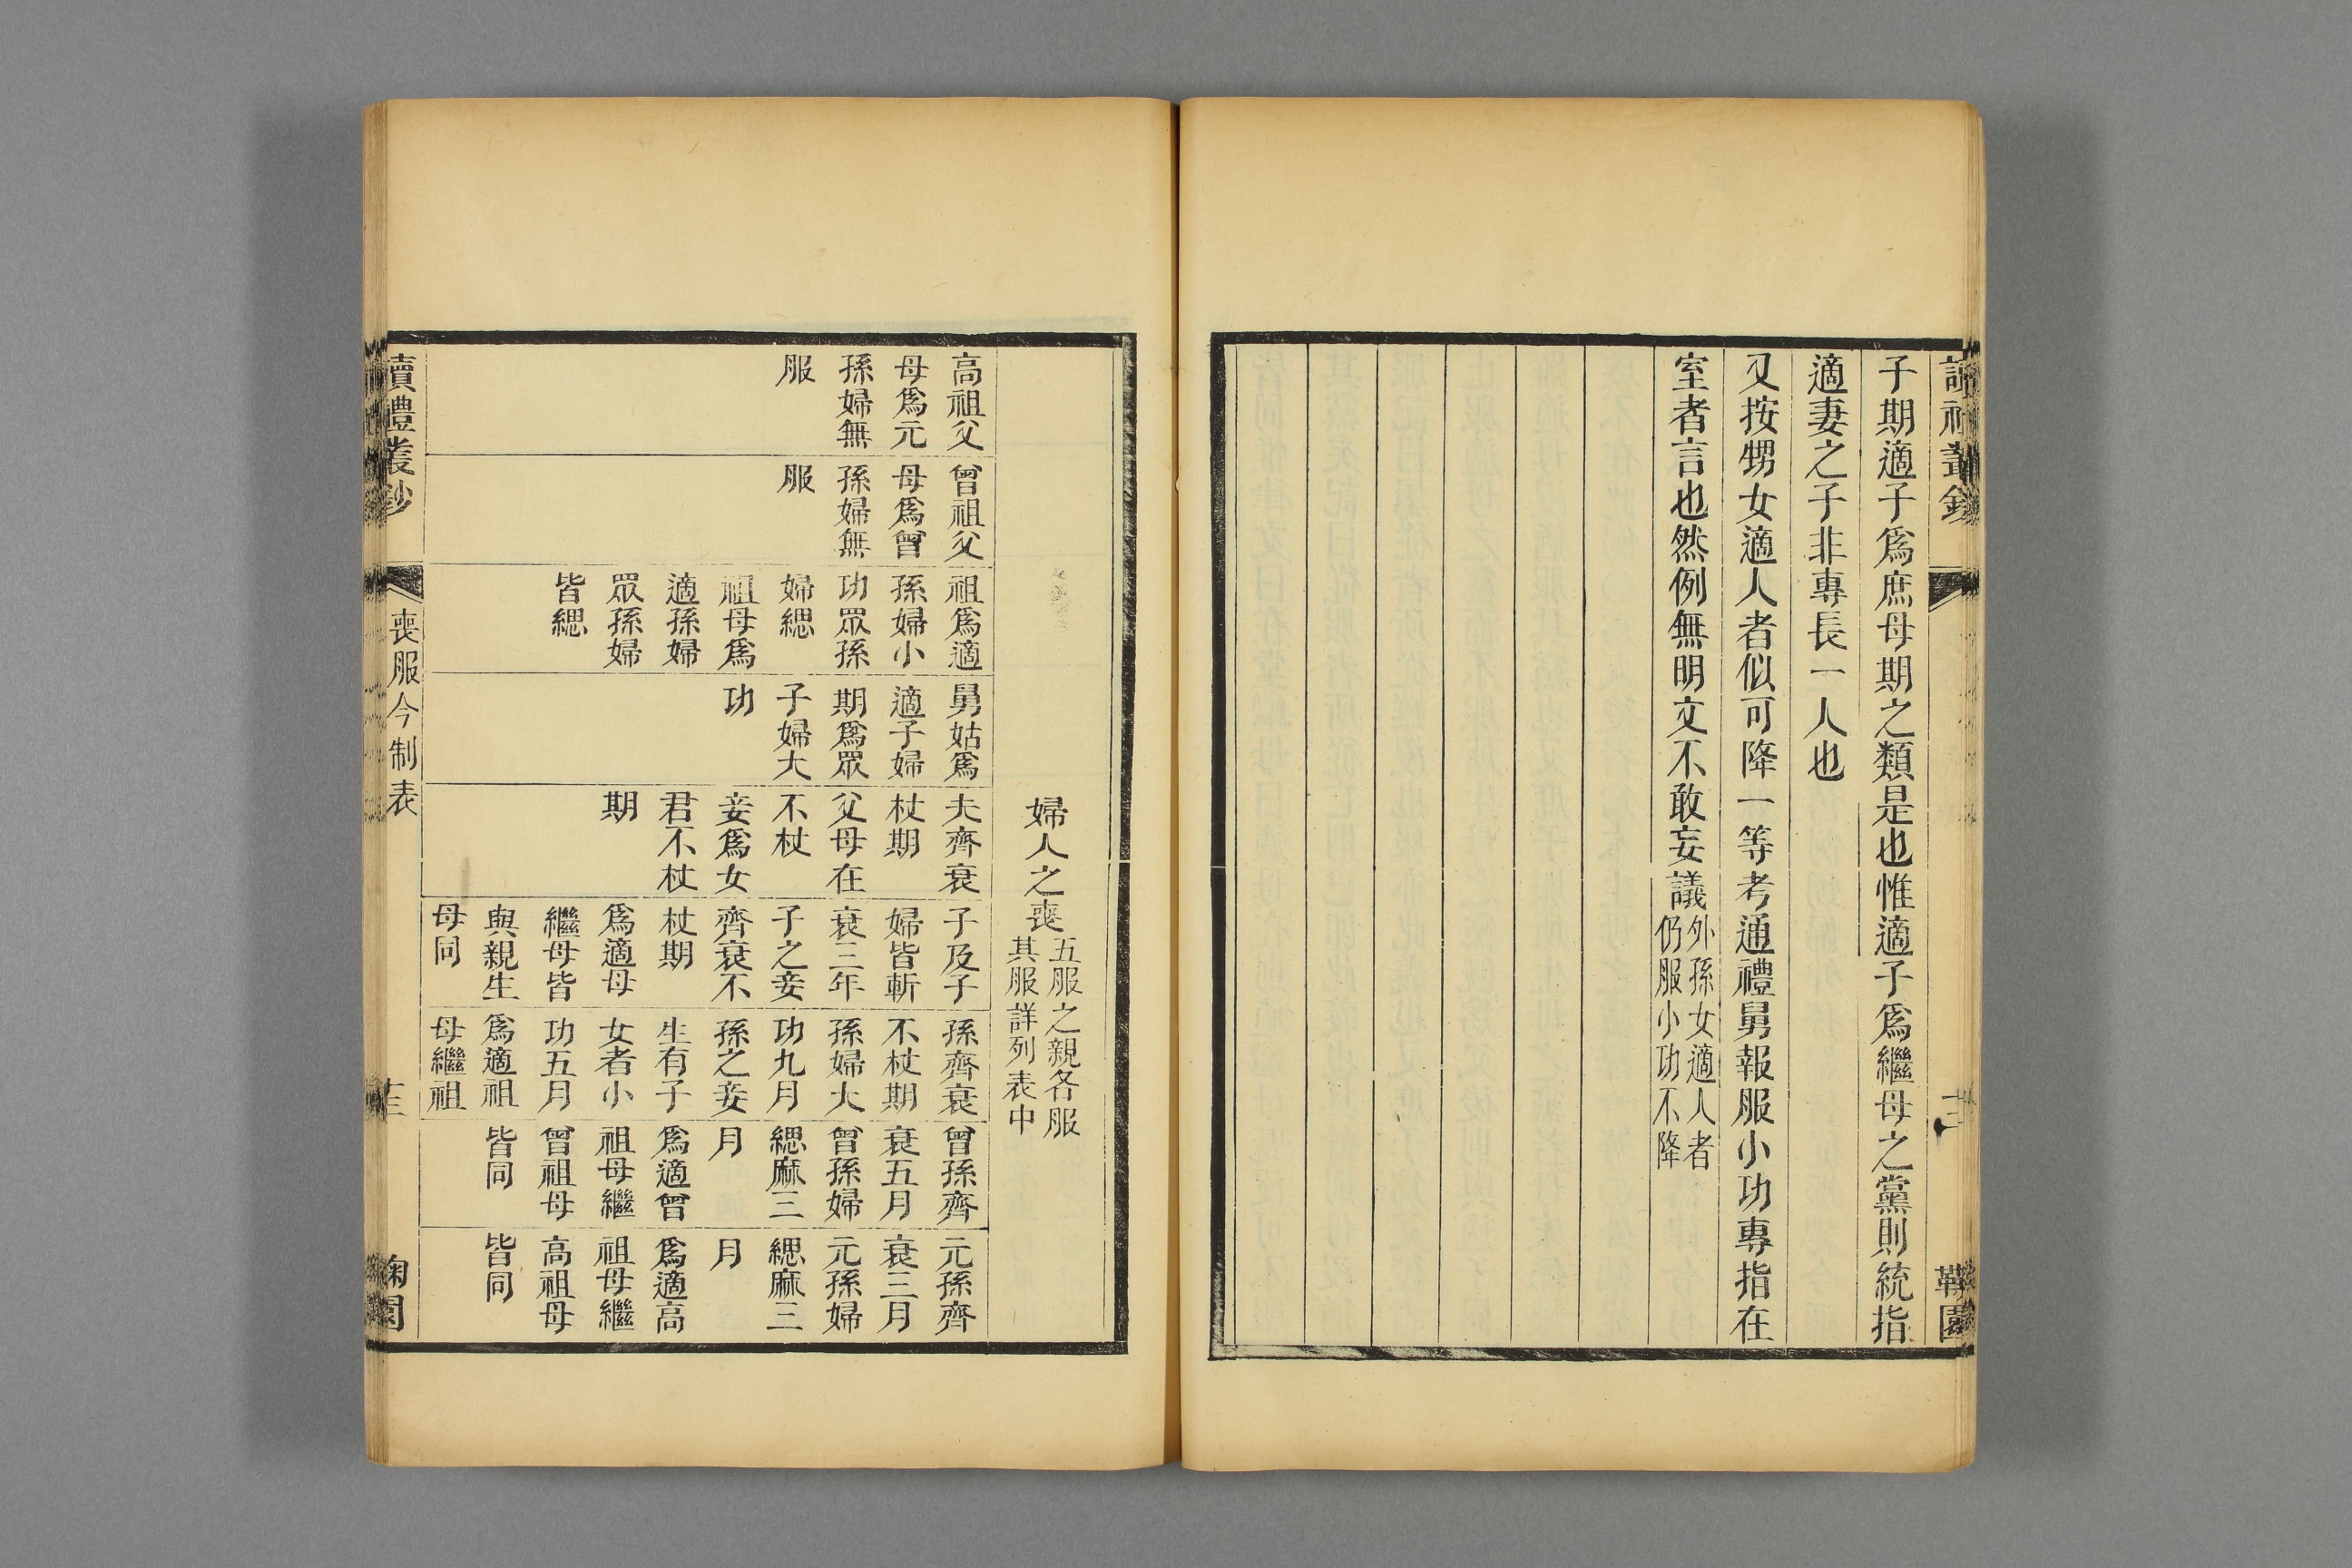 讀禮叢鈔
廿二
鞠園
子期適子爲庶母期之類是也惟適子爲繼母之黨則統指
適妻之子非專長一人也
又按甥女適人者似可降一等考通禮舅報服小功專指在
室者言也然例無明文不敢妄議
外孫女適人者
仍服小功不降
婦人之喪
五服之親各服
其服詳列表中
高祖父
母爲元
孫婦無
服
曾祖父
母爲曾
孫婦無
服
祖爲適
孫婦小
功眾孫
婦緦
祖母爲
適孫婦
眾孫婦
皆緦
舅姑爲
適子婦
期爲眾
子婦大
功
夫齊衰
杖期
父母在
不杖
妾爲女
君不杖
期
子及子
婦皆斬
衰三年
子之妾
齊衰不
杖期
爲適母
繼母皆
與親生
母同
孫齊衰
不杖期
孫婦大
功九月
孫之妾
生有子
女者小
功五月
爲適祖
母繼祖
曾孫齊
衰五月
曾孫婦
緦麻三
月
爲適曾
祖母繼
曾祖母
皆同
元孫齊
衰三月
元孫婦
緦麻三
月
爲適高
祖母繼
高祖母
皆同
讀禮叢鈔
喪服今制表
鞠園